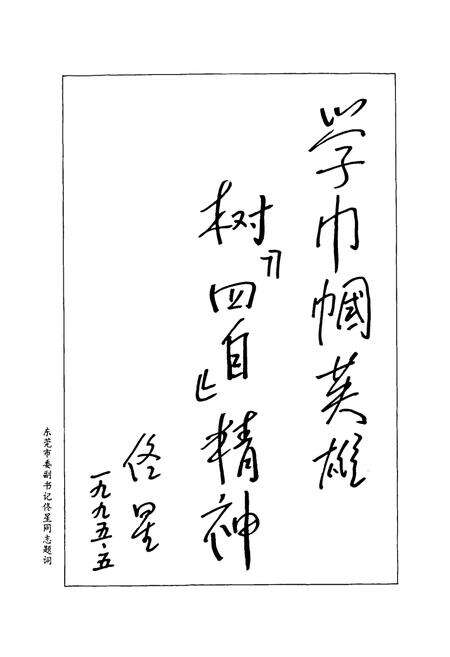 学巾帼英雄
树『四自』精神
佟星
一九九五·五
东莞市委副书记佟星同志题词